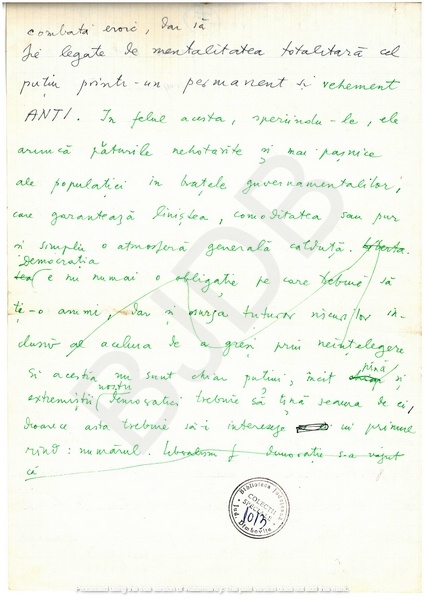 combată eroic, dar să
fie legate de mentalitatea totalitară cel
puțin printr-un permanent și vehement
ANTI. În felul acesta, speriindu-le, ele
aruncă păturile nehotărîte și mai pașnice
ale populației în brațele guvernamentalilor,
care garantează liniștea, comoditatea sau pur
și simplu o atmosferă generală călduță.
democrația
e nu numai o obligație pe care trebuie să
ți-o asumi, dar și sursa tuturor riscurilor in-
clusiv al aceluia de a greși prin neînțelegere
Și aceștia nu sunt chiar puțini, încît pînă și
extremiștii noștri democratici trebuie să țină seama de ei,
deoarece asta trebuie să-i intereseze în primul
rînd: numărul. liberalism democratic s-a văzut
că
Biblioteca Județeană
COLECȚII
SPECIALE
Jud. Dîmbovița
BJDB